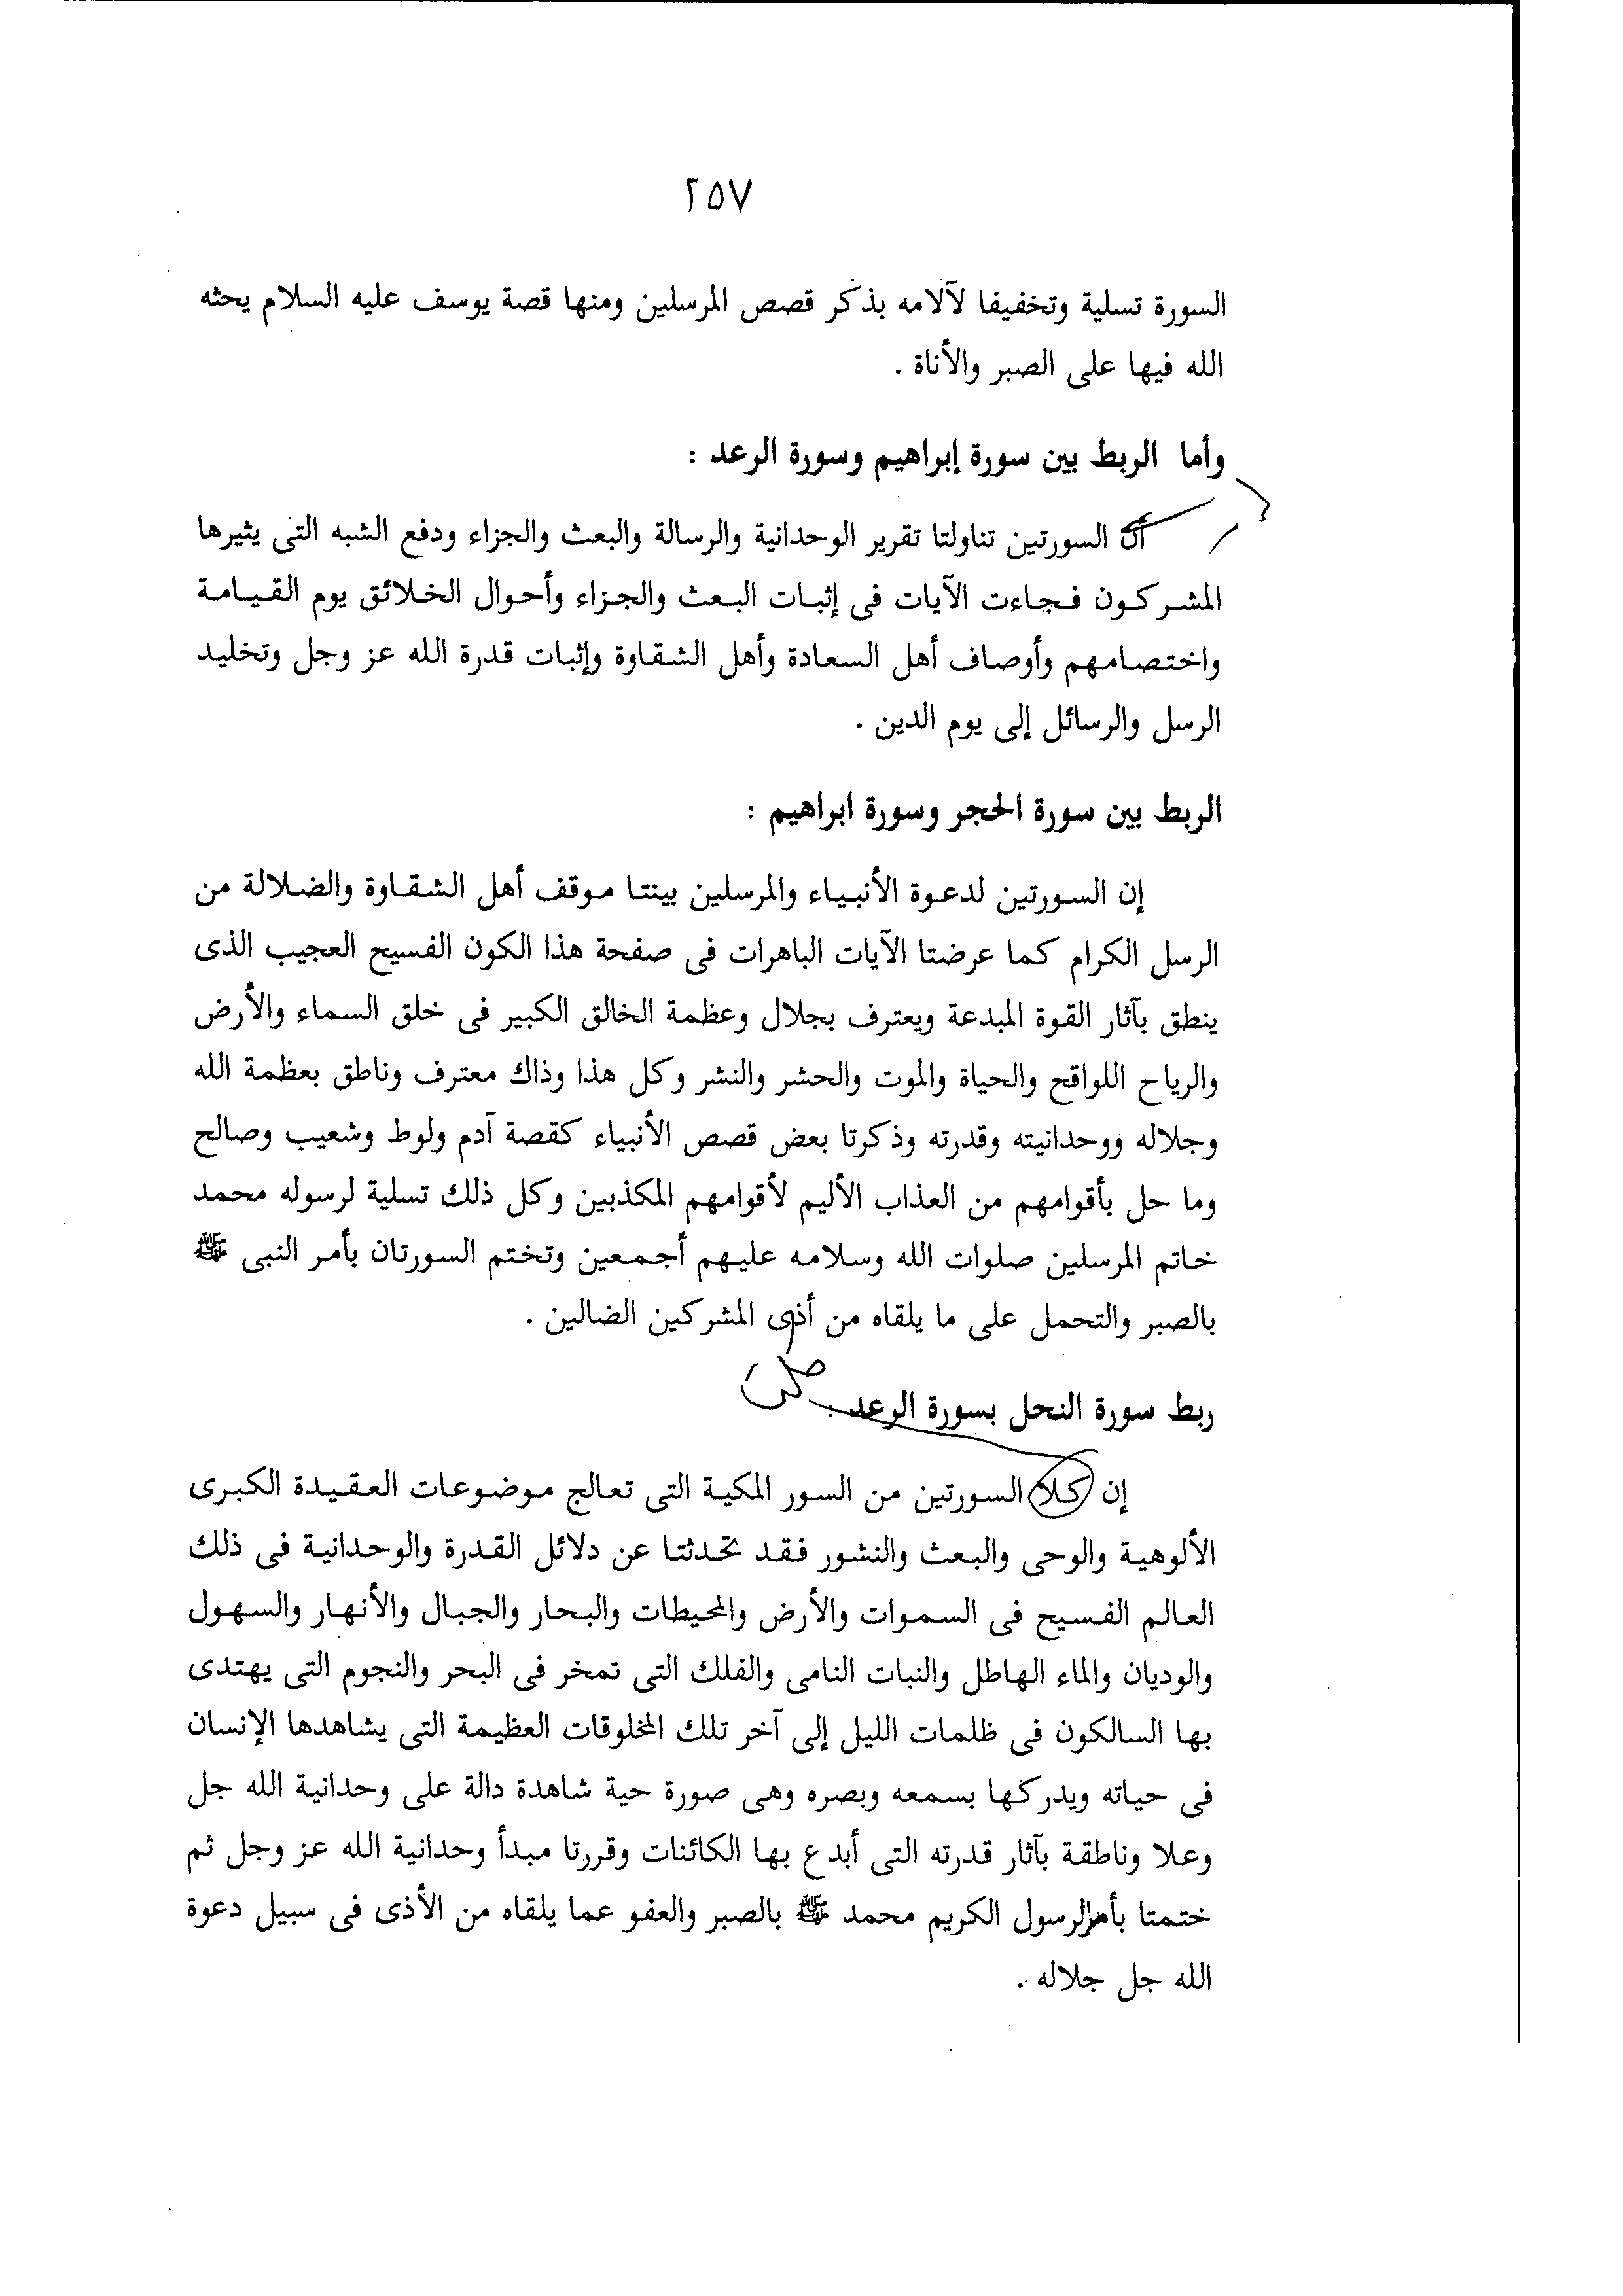 ٢٥٧
السورة تسلية وتخفيفا لآلامه بذكر قصص المرسلين ومنها قصة يوسف عليه السلام يحثه
الله فيها على الصبر والأناة .
وأما الربط بين سورة إبراهيم وسورة الرعد :
أن السورتين تناولتا تقرير الوحدانية والرسالة والبعث والجزاء ودفع الشبه التى يثيرها
المشركون فجاءت الآيات فى إثبات البعث والجزاء وأحوال الخلائق يوم القيامة
واختصامهم وأوصاف أهل السعادة وأهل الشقاوة وإثبات قدرة الله عز وجل وتخليد
الرسل والرسائل إلى يوم الدين .
الربط بين سورة الحجر وسورة ابراهيم :
إن السورتين لدعوة الأنبياء والمرسلين بينتا موقف أهل الشقاوة والضلالة من
الرسل الكرام كما عرضتا الآيات الباهرات فى صفحة هذا الكون الفسيح العجيب الذى
ينطق بآثار القوة المبدعة ويعترف بجلال وعظمة الخالق الكبير فى خلق السماء والأرض
والرياح اللواقح والحياة والموت والحشر والنشر وكل هذا وذاك معترف وناطق بعظمة الله
وجلاله ووحدانيته وقدرته وذكرتا بعض قصص الأنبياء كقصة آدم ولوط وشعيب وصالح
وما حل بأقوامهم من العذاب الأليم لأقوامهم المكذبين وكل ذلك تسلية لرسوله محمد
خاتم المرسلين صلوات الله وسلامه عليهم أجمعين وتختم السورتان بأمر النبى ﷺ
بالصبر والتحمل على ما يلقاه من أذى المشركين الضالين .
ربط سورة النحل بسورة الرعد .
إن كلا السورتين من السور المكية التى تعالج موضوعات العقيدة الكبرى
الألوهية والوحى والبعث والنشور فقد تحدثتا عن دلائل القدرة والوحدانية فى ذلك
العالم الفسيح فى السموات والأرض والمحيطات والبحار والجبال والأنهار والسهول
والوديان والماء الهاطل والنبات النامى والفلك التى تمخر فى البحر والنجوم التى يهتدى
بها السالكون فى ظلمات الليل إلى آخر تلك المخلوقات العظيمة التى يشاهدها الإنسان
فى حياته ويدركها بسمعه وبصره وهى صورة حية شاهدة دالة على وحدانية الله جل
وعلا وناطقة بآثار قدرته التى أبدع بها الكائنات وقررتا مبدأ وحدانية الله عز وجل ثم
ختمتا بأمر الرسول الكريم محمد ﷺ بالصبر والعفو عما يلقاه من الأذى فى سبيل دعوة
الله جل جلاله .